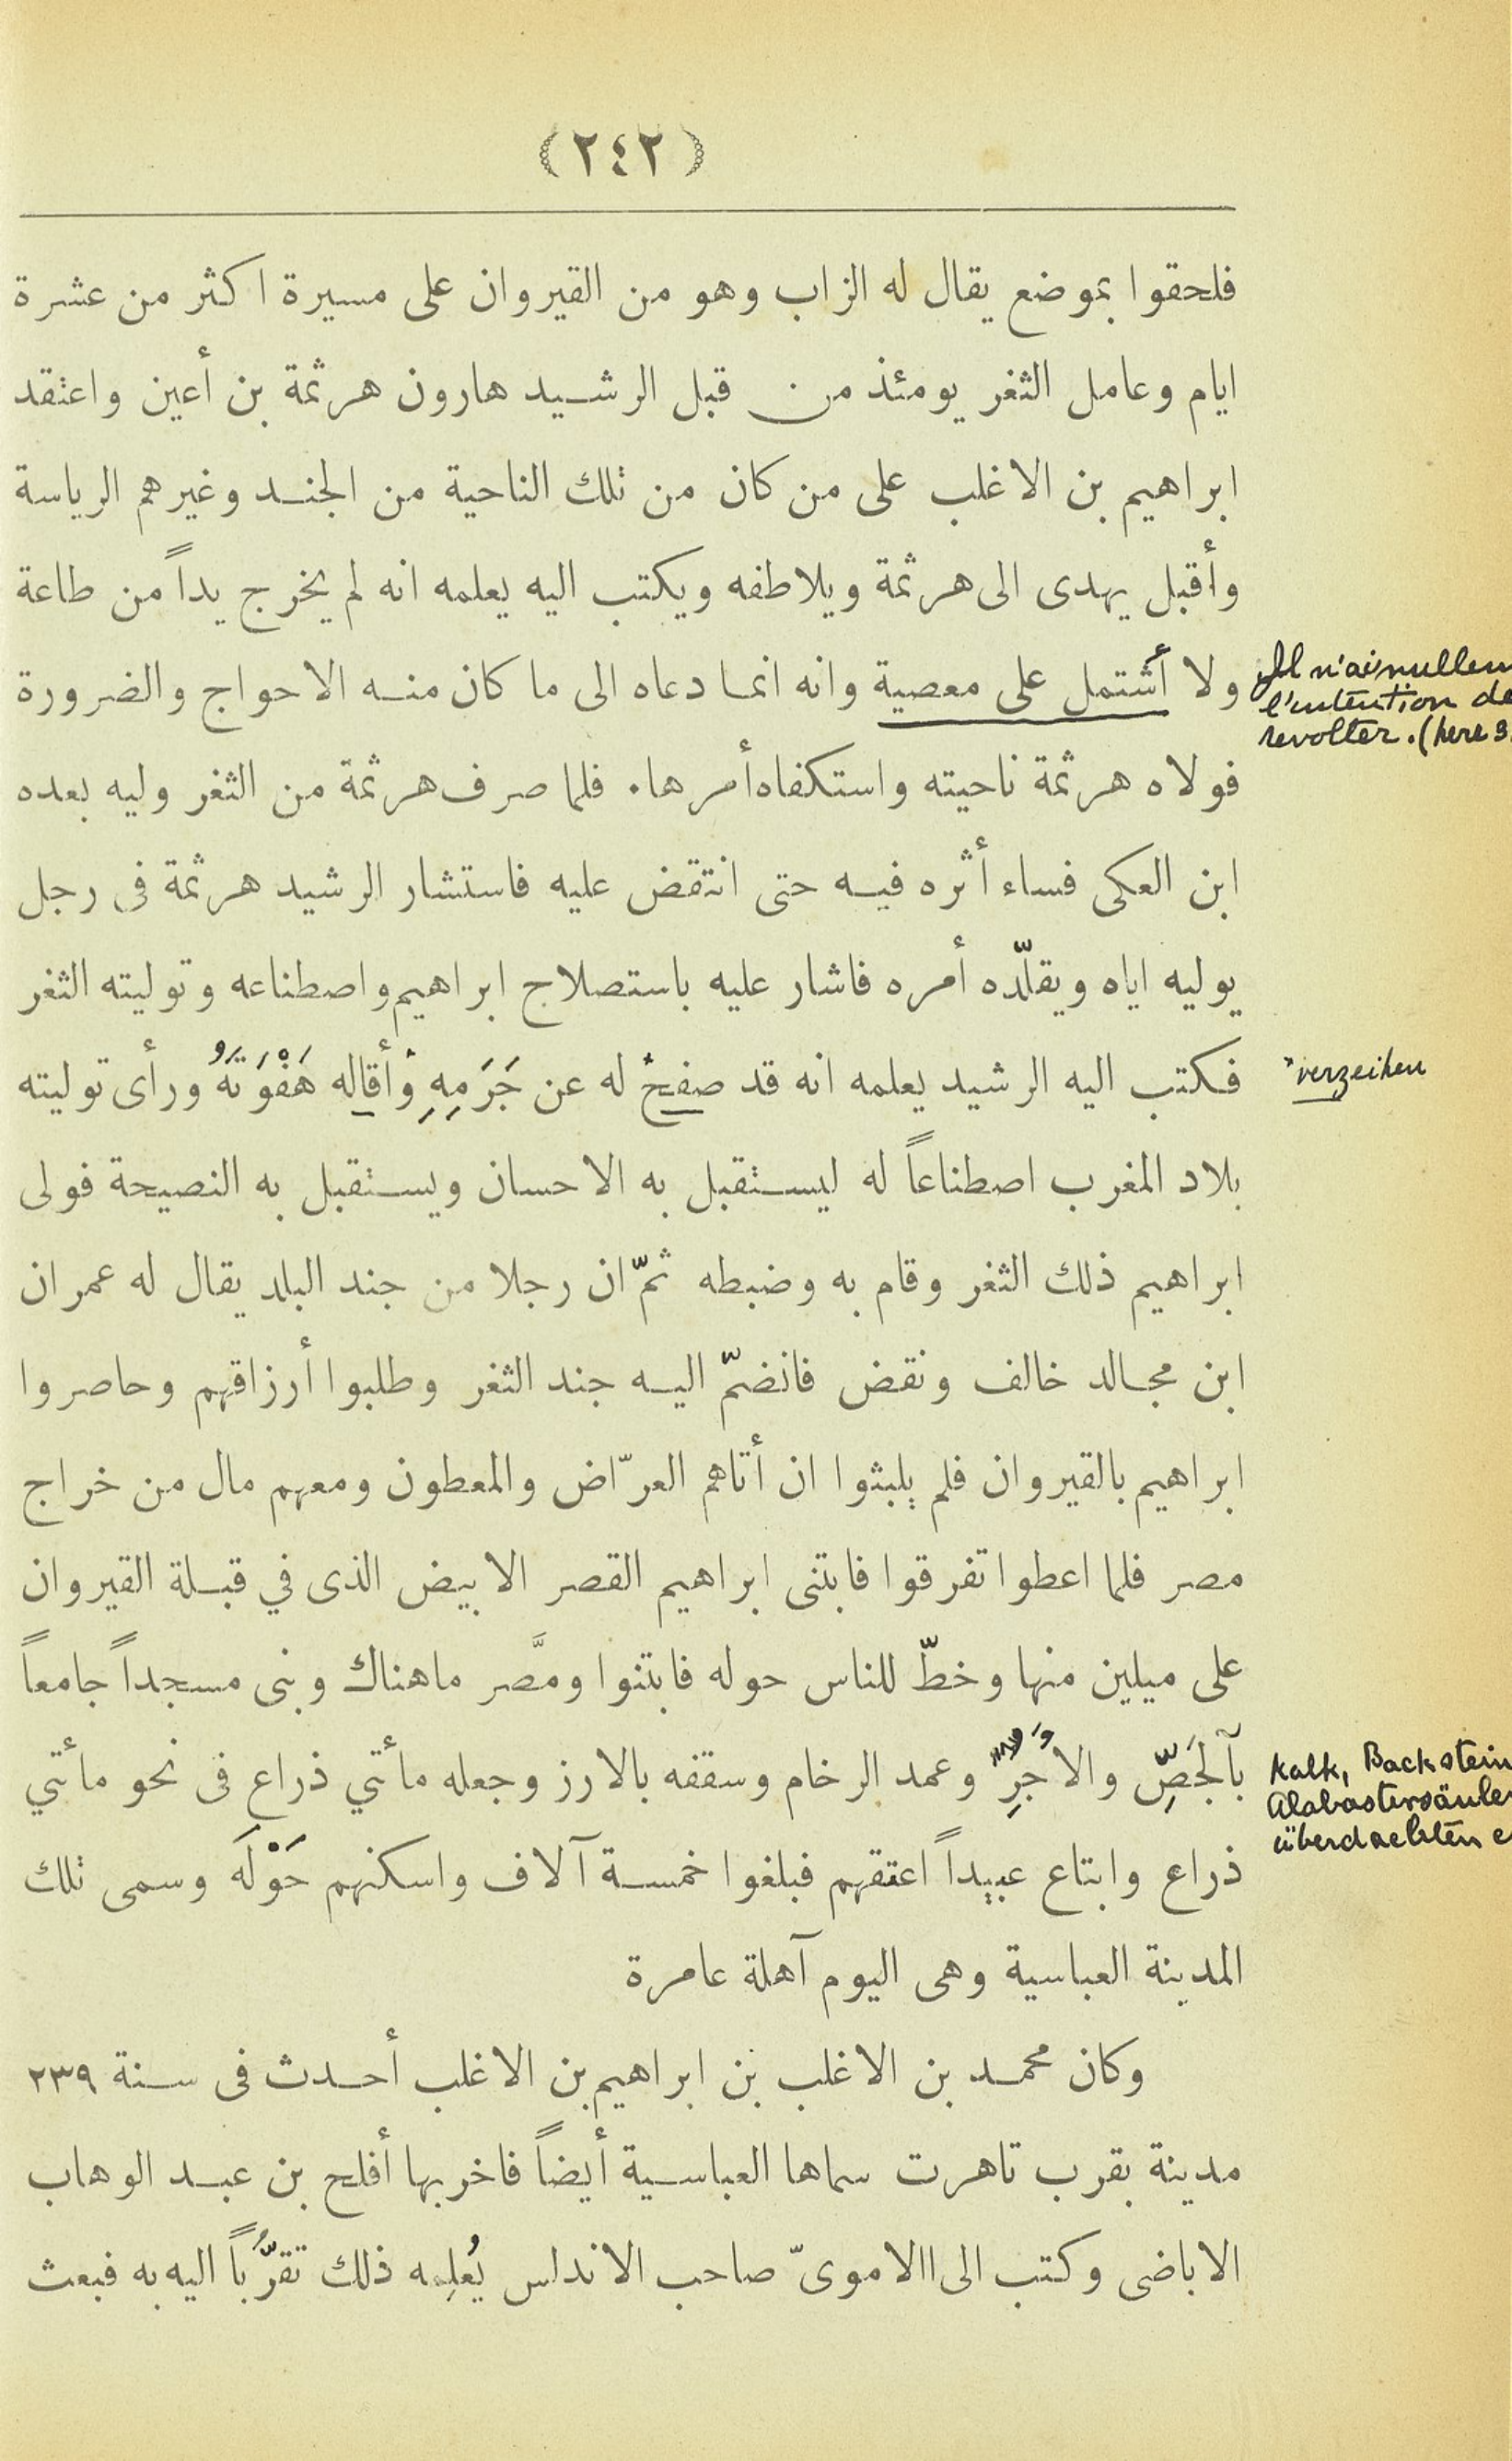 (٢٤٢)
فلحقوا بموضع يقال له الزاب وهو من القيروان على مسيرة اكثر من عشرة
ايام وعامل الثغر يومئذ من قبل الرشيد هارون هرثمة بن أعين واعتقد
ابراهيم بن الاغلب على من كان من تلك الناحية من الجند وغيرهم الرياسة
وأقبل يهدى الى هرثمة ويلاطفه ويكتب اليه يعلمه انه لم يخرج يداً من طاعة
ولا أشتمل على معصية وانه انما دعاه الى ما كان منه الاحواج والضرورة
Il n'ai nullem
l'intention de
revolter. (here
فولاه هرثمة ناحيته واستكفاه أمرها. فلما صرف هرثمة من الثغر وليه بعده
ابن العكى فساء أثره فيه حتى انتقض عليه فاستشار الرشيد هرثمة فى رجل
يوليه اياه ويقلّده أمره فاشار عليه باستصلاح ابراهيم واصطناعه وتوليته الثغر
فكتب اليه الرشيد يعلمه انه قد صفح له عن جَرَمِهِ وأقاله هَفْوَتَهُ ورأى توليته
verzeihen
بلاد المغرب اصطناعاً له ليستقبل به الاحسان ويستقبل به النصيحة فولى
ابراهيم ذلك الثغر وقام به وضبطه ثمّ ان رجلا من جند البلد يقال له عمران
ابن مجالد خالف ونقض فانضمّ اليه جند الثغر وطلبوا أرزاقهم وحاصروا
ابراهيم بالقيروان فلم يلبثوا ان أتاهم العرّاض والمعطون ومعهم مال من خراج
مصر فلما اعطوا تفرقوا فابتنى ابراهيم القصر الابيض الذى في قبلة القيروان
على ميلين منها وخطّ للناس حوله فابتنوا ومصَّر ماهناك وبنى مسجداً جامعاً
بآلجَصِّ والاَجرِّ وعمد الرخام وسقفه بالارز وجعله مأتي ذراع فى نحو مأتي
Kalk, Backstein
Alabastersäulen
überdachten
ذراع وابتاع عبيداً اعتقهم فبلغوا خمسة آلاف واسكنهم حَوْلَه وسمى تلك
المدينة العباسية وهى اليوم آهلة عامرة
وكان محمد بن الاغلب بن ابراهيم بن الاغلب أحدث فى سنة ٢٣٩
مدينة بقرب تاهرت سماها العباسية أيضاً فاخربها أفلح بن عبد الوهاب
الاباضى وكتب الى االاموىّ صاحب الاندلس يُعلِمه ذلك تقرُّباً اليه به فبعث